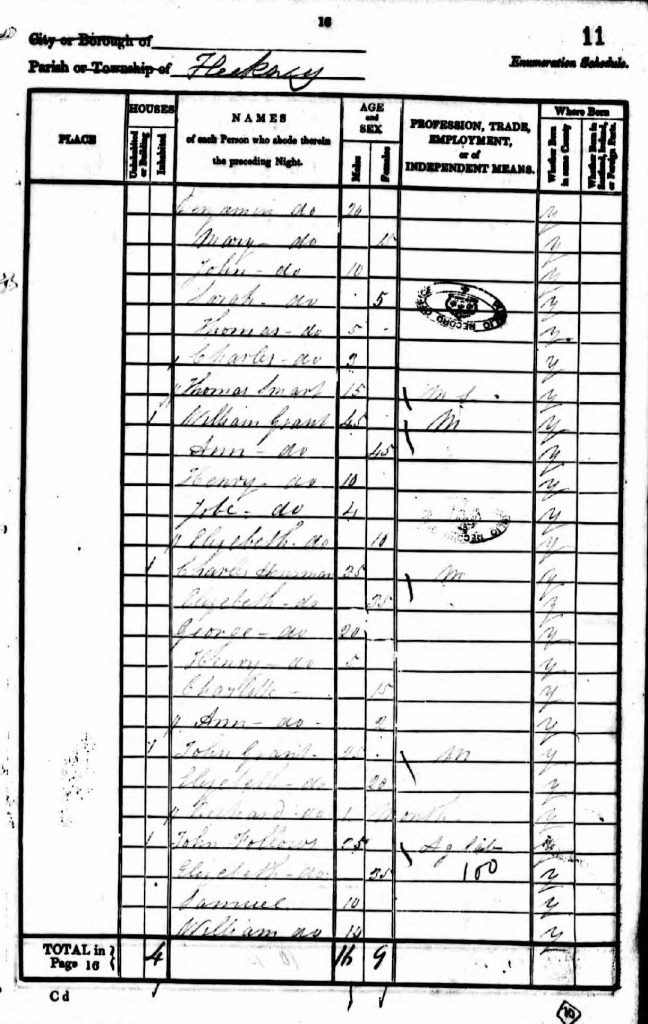 16
11
City or Borough of
Parish or Township of Fleckney
Enumeration Schedule.
PLACE
HOUSES
Uninhabited or Building
Inhabited
NAMES
of each Person who abode therein the preceding Night.
AGE and SEX
Males
Females
PROFESSION, TRADE, EMPLOYMENT, or of INDEPENDENT MEANS.
Where Born
Whether Born in same County
Whether Born in Scotland, Ireland, or Foreign Parts.
Benjamin do 20 y
Mary do 15 y
John do 10 y
Sarah do 5 y
Thomas do 5 y
Charles do 3 y
Thomas Smart 15 y
1 William Grant 45 M y
Ann do 45 y
Henry do 10 y
Jobe do 4 y
Elizebeth do 10 y
1 Charles 35 M y
Elizebeth do 35 y
George do 20 y
Henry do 5 y
Charlotte 15 y
Ann do 2 y
1 John Grant 25 M y
Elizebeth do 20 y
Richard do 1 Month y
1 John Follows Ag Lab
Elizebeth do 35 100 y
Samuel 10 y
William do 14 y
TOTAL in Page 16 4 16 9
C d
PUBLIC RECORD OFFICE